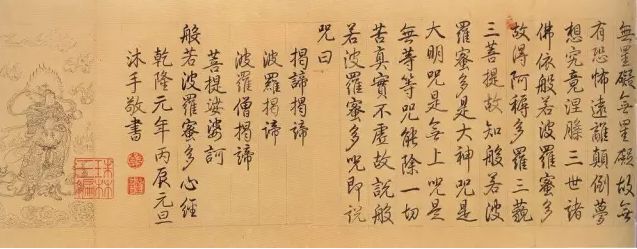 無罣礙無罣礙故無
有恐怖遠離顛倒夢
想究竟涅槃三世諸
佛依般若波羅蜜多
故得阿耨多羅三藐
三菩提故知般若波
羅蜜多是大神咒是
大明咒是無上咒是
無等等咒能除一切
苦真實不虛故說般
若波羅蜜多咒即說
咒曰
揭諦揭諦
波羅揭諦
波羅僧揭諦
菩提娑婆訶
般若波羅蜜多心經
乾隆元年丙辰元旦
沐手敬書